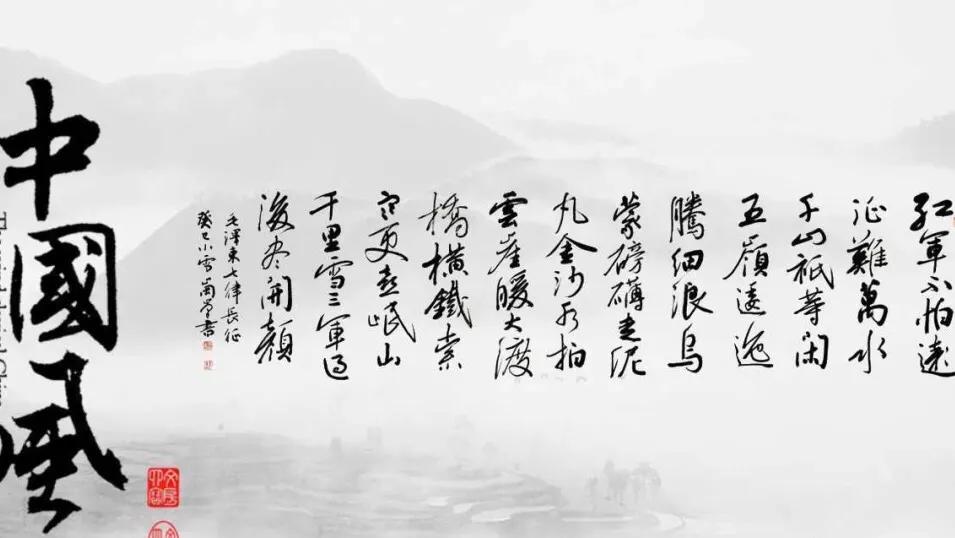 紅軍不怕遠
征難萬水
千山祇等闲
五嶺逶迤
騰細浪烏
蒙磅礴走泥
丸金沙水拍
雲崖暖大渡
橋橫鐵索
寒更喜岷山
千里雪三軍過
後尽開顏
毛澤東七律長征
癸巳小雪
中國風